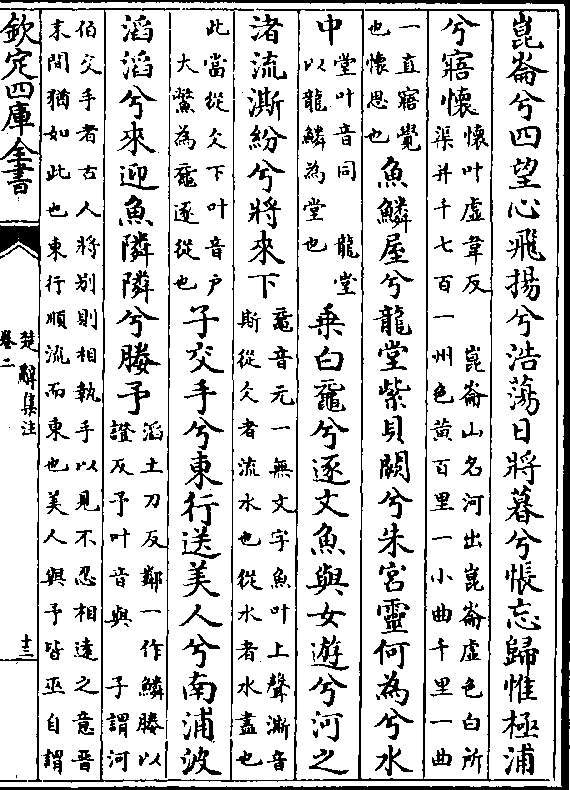 崑崙兮四望心飛揚兮浩蕩日將暮兮悵忘歸惟極浦
兮寤懷懷叶虛韋反 崑崙山名河出崑崙虛色白所
渠并千七百一州色黃百里一小曲千里一曲
一直寤覺
也懷思也魚鱗屋兮龍堂紫貝闕兮朱宮靈何為兮水
中堂叶音同 龍堂
以龍鱗為堂也乗白黿兮逐文魚與女遊兮河之
渚流澌紛兮將來下黿音元一無文字魚叶上聲澌音
斯從仌者流水也從水者水盡也
此當從仌下叶音户
大鱉為黿逐從也子交手兮東行送美人兮南浦波
滔滔兮來迎魚隣隣兮媵予滔土刀反鄰一作鱗媵以
證反予叶音與 子謂河
伯交手者古人將别則相執手以見不忍相逺之意晉
末間猶如此也東行順流而東也美人與予皆巫自謂
欽定四庫全書
楚辭集注
卷二
十三